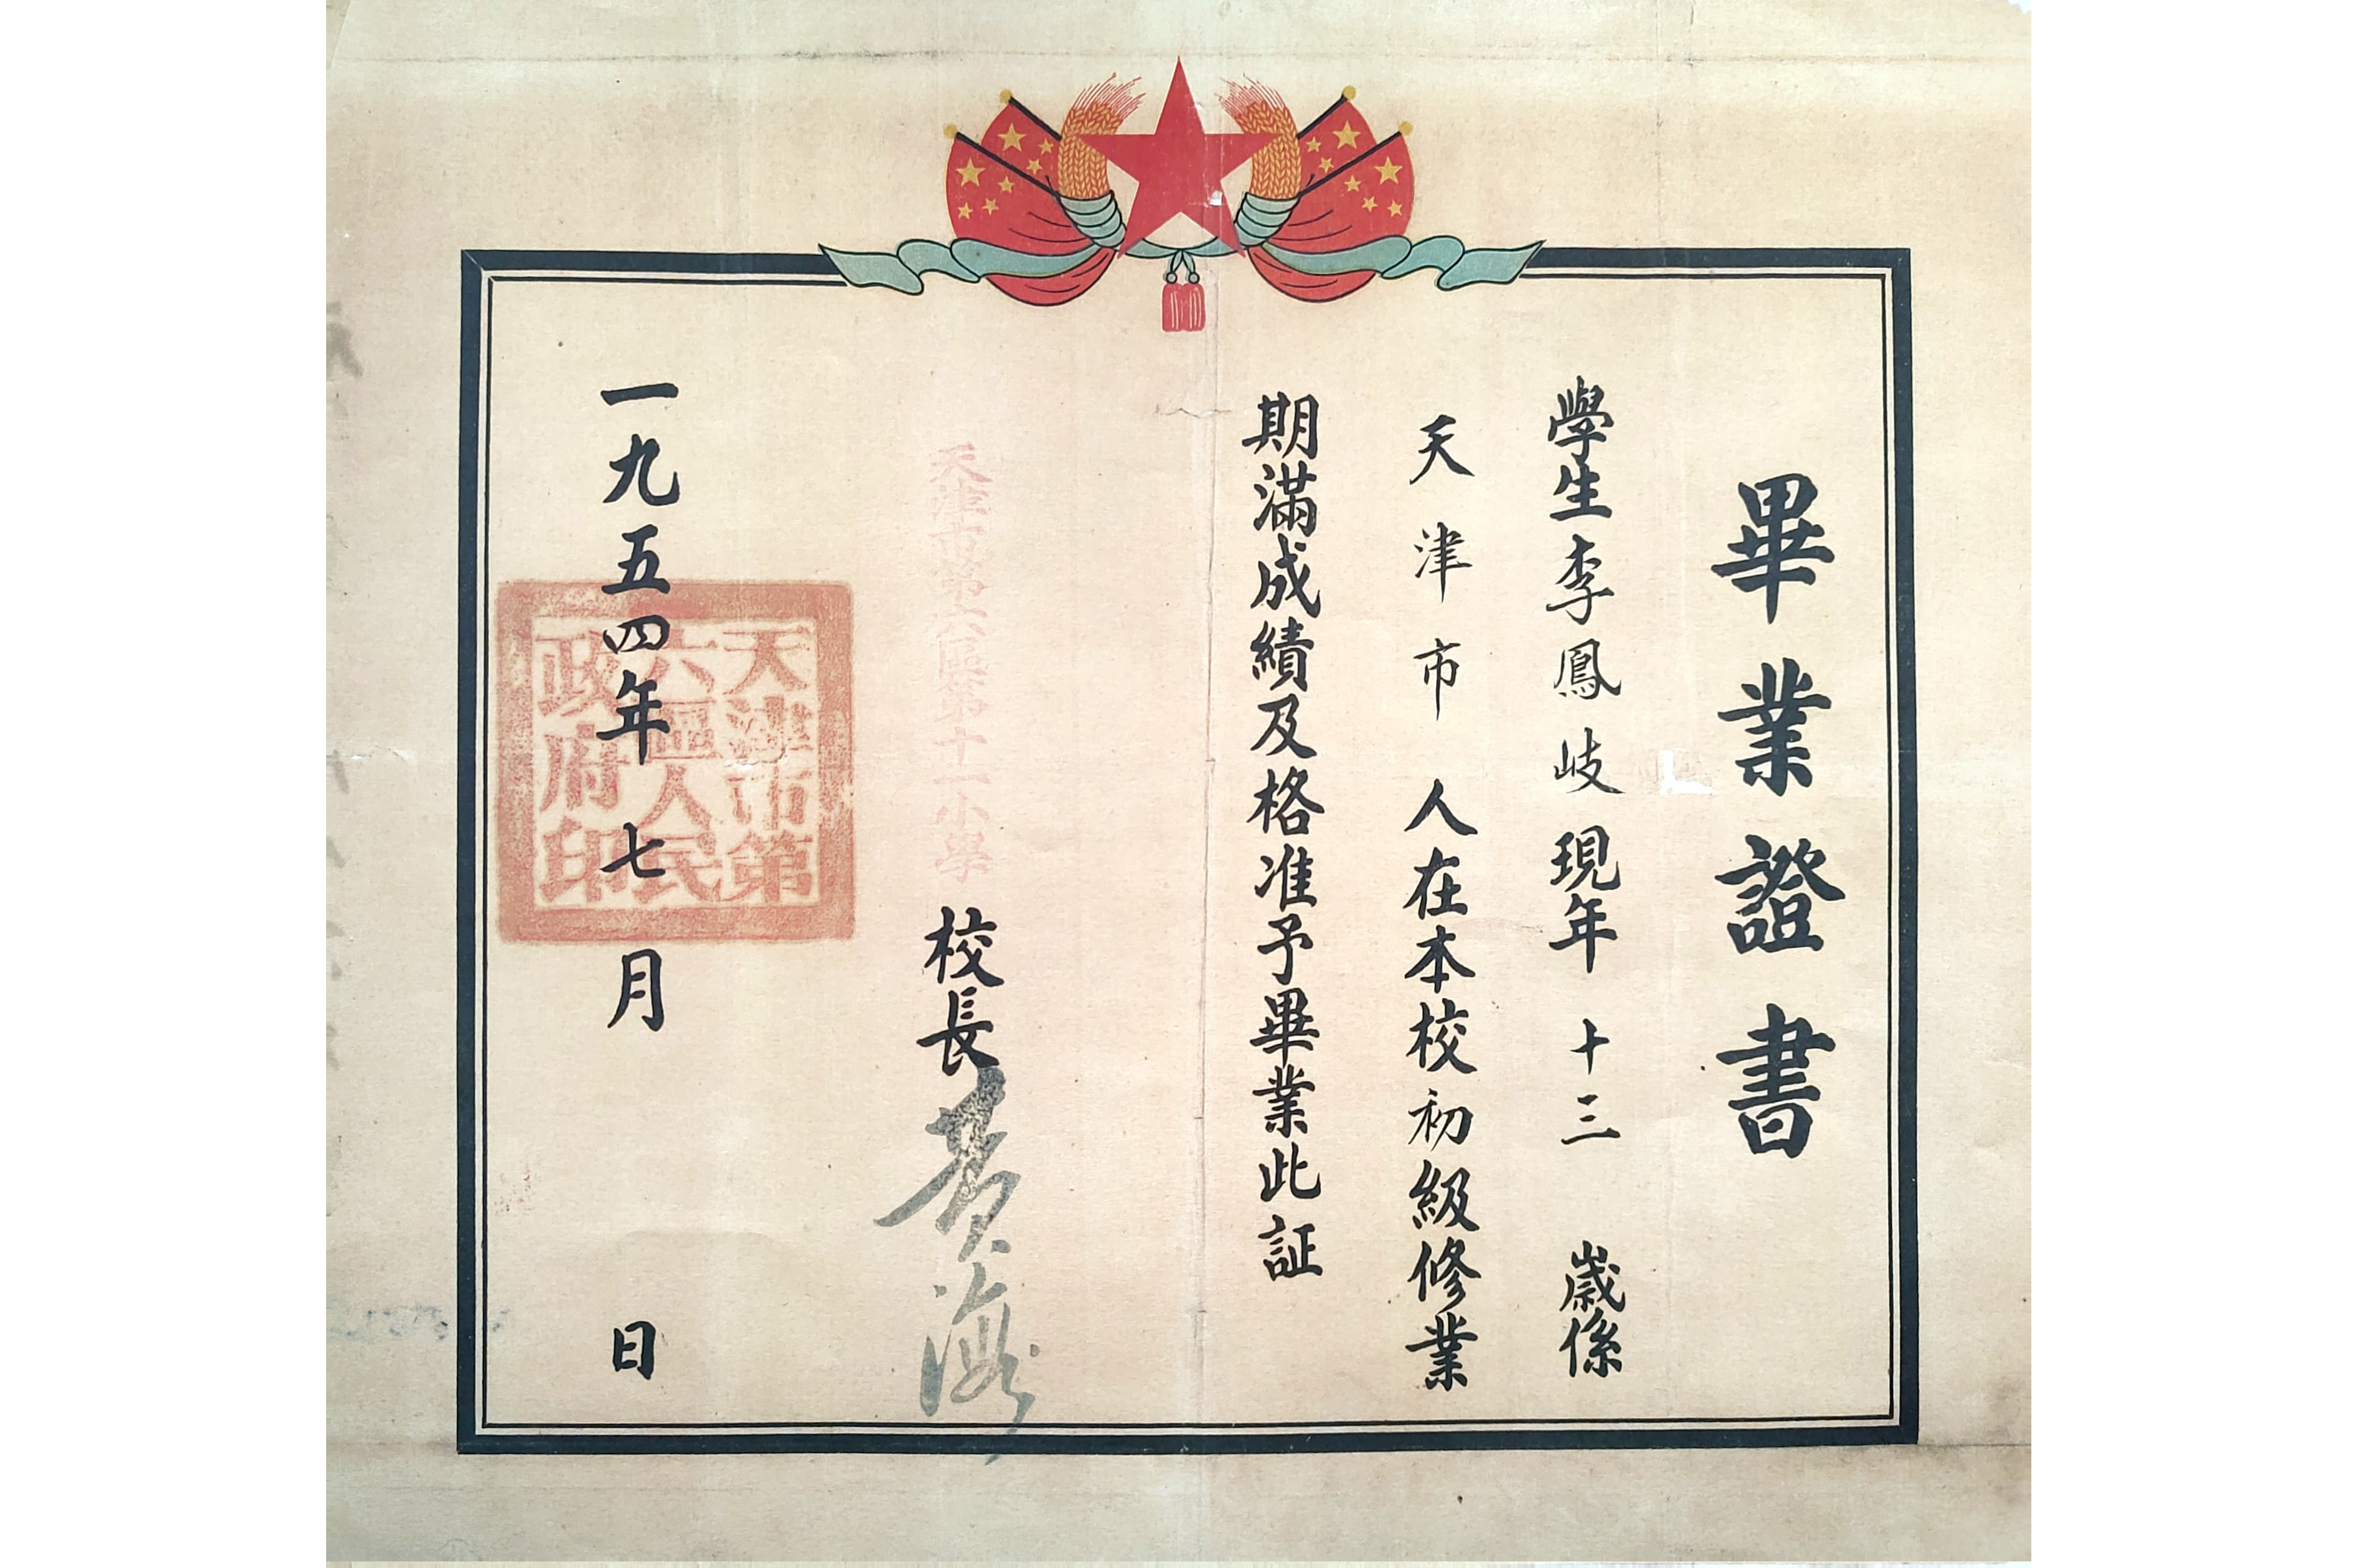 畢業證書
學生李鳳岐現年十三歲係
天津市人在本校初級修業
期滿成績及格准予畢業此証
天津市第六區第十一小學
校長黄海
一九五四年七月日
天津市第
六區人民
政府印